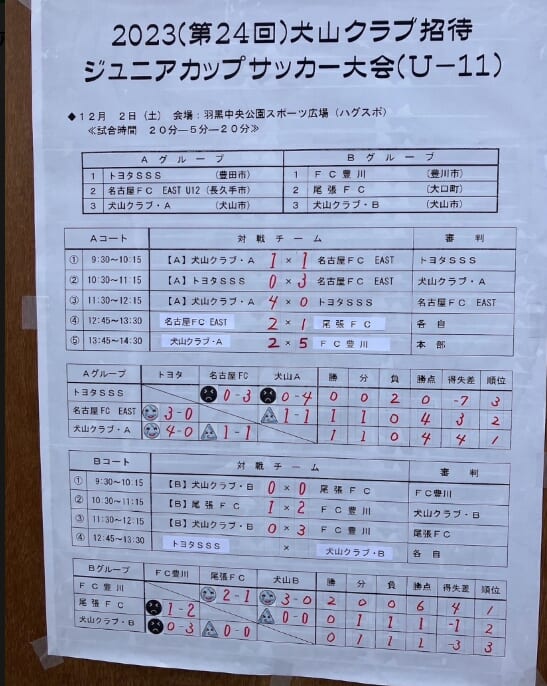 2023(第24回)犬山クラブ招待
ジュニアカップサッカー大会(U-11)
◆12月 2日(土) 会場:羽黒中央公園スポーツ広場(ハグスポ)
≪試合時間 20分―5分―20分≫
Aグループ Bグループ
1 トヨタSSS (豊田市) 1 FC豊川 (豊川市)
2 名古屋FC EAST U12 (長久手市) 2 尾張FC (大口町)
3 犬山クラブ・A (犬山市) 3 犬山クラブ・B (犬山市)
Aコート 対戦チーム 審判
① 9:30~10:15 【A】犬山クラブ・A 1 × 1 名古屋FC EAST トヨタSSS
② 10:30~11:15 【A】トヨタSSS 0 × 3 名古屋FC EAST 犬山クラブ・A
③ 11:30~12:15 【A】犬山クラブ・A 4 × 0 トヨタSSS 名古屋FC EAST
④ 12:45~13:30 名古屋FC EAST 2 × 1 尾張FC 各自
⑤ 13:45~14:30 犬山クラブ・A 2 × 5 FC豊川 本部
Aグループ トヨタ 名古屋FC 犬山A 勝 分 負 勝点 得失差 順位
トヨタSSS 0-3 0-4 0 0 2 0 -7 3
名古屋FC EAST 3-0 1-1 1 1 0 4 3 2
犬山クラブ・A 4-0 1-1 1 1 0 4 4 1
Bコート 対戦チーム 審判
① 9:30~10:15 【B】犬山クラブ・B 0 × 0 尾張FC FC豊川
② 10:30~11:15 【B】尾張FC 1 × 2 FC豊川 犬山クラブ・B
③ 11:30~12:15 【B】犬山クラブ・B 0 × 3 FC豊川 尾張FC
④ 12:45~13:30 トヨタSSS × 犬山クラブ・B 各自
Bグループ FC豊川 尾張FC 犬山B 勝 分 負 勝点 得失差 順位
FC豊川 2-1 3-0 2 0 0 6 4 1
尾張FC 1-2 0-0 0 1 1 1 -1 2
犬山クラブ・B 0-3 0-0 0 1 1 1 -3 3